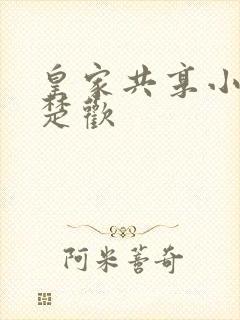 皇家共享小
楚歡
阿米薔奇